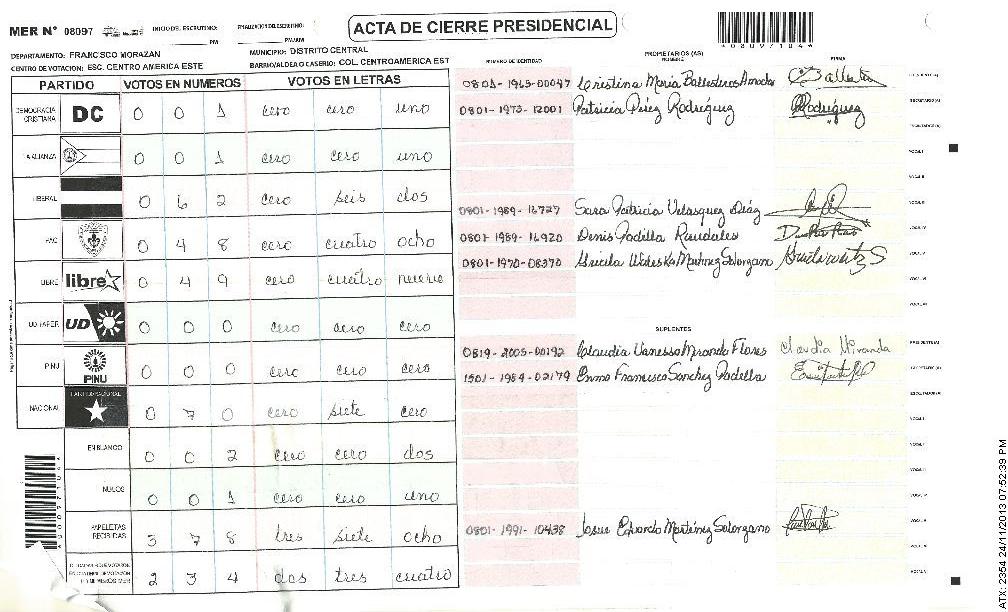 MER N° 08097
INICIO DEL ESCRUTINIO: PM
FINALIZACION DEL ESCRUTINIO: PM/AM
ACTA DE CIERRE PRESIDENCIAL
DEPARTAMENTO: FRANCISCO MORAZAN
MUNICIPIO: DISTRITO CENTRAL
CENTRO DE VOTACION: ESC. CENTRO AMERICA ESTE
BARRIO/ALDEA O CASERIO: COL. CENTROAMERICA EST
PARTIDO VOTOS EN NUMEROS VOTOS EN LETRAS
DEMOCRACIA CRISTIANA DC 0 0 1 cero cero uno
LA ALIANZA 0 0 1 cero cero uno
LIBERAL 0 6 2 cero seis dos
PAC 0 4 8 cero cuatro ocho
LIBRE libre 0 4 9 cero cuatro nueve
UD-FAPER UD 0 0 0 cero cero cero
PINU PINU 0 0 0 cero cero cero
NACIONAL PARTIDO NACIONAL 0 7 0 cero siete cero
EN BLANCO 0 0 2 cero cero dos
NULOS 0 0 1 cero cero uno
PAPELETAS RECIBIDAS 3 7 8 tres siete ocho
2 3 4 dos tres cuatro
NUMERO DE IDENTIDAD PROPIETARIOS (AS) NOMBRE FIRMA
0801-1965-00047 Cristina Maria Ballesteros Amador PRESIDENTE(A)
0801-1973-12001 Patricia Pérez Rodríguez Rodríguez SECRETARIO(A)
ESCRUTADOR (A)
VOCAL I
VOCAL II
0801-1989-16727 Sara Patricia Velasquez Díaz VOCAL III
0801-1989-16920 Denis Padilla Raudales VOCAL IV
0801-1970-08370 Martinez Solorzano VOCAL V
VOCAL VI
VOCAL VII
SUPLENTES
0819-2005-00192 Claudia Vanessa Miranda Flores Claudia Miranda PRESIDENTE(A)
1501-1984-02179 Francisco Sanchez Padilla SECRETARIO(A)
ESCRUTADOR(A)
VOCAL I
0801-1991-10438 Josue Eduardo Martinez Solorzano
*08097104*
ATX: 2354 24/11/2013 07:52:39 PM